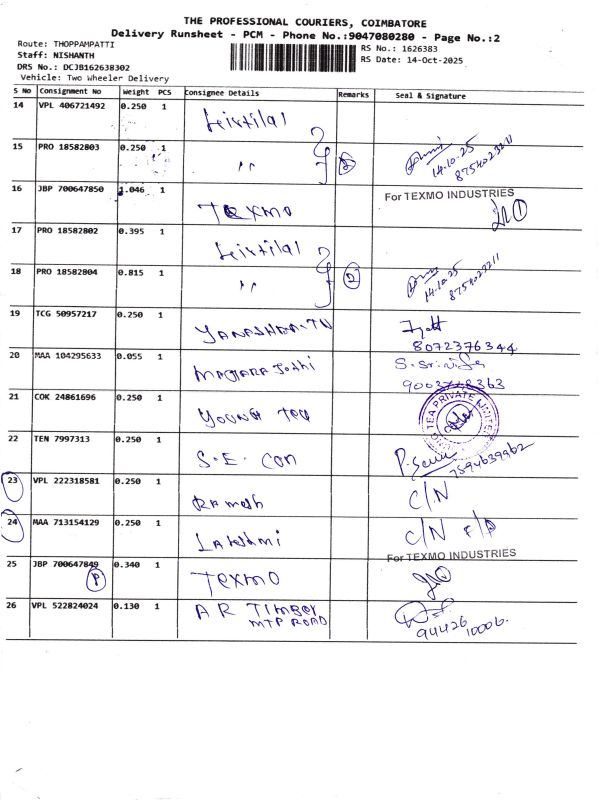 THE PROFESSIONAL COURIERS, COIMBATORE
Delivery Runsheet - PCM - Phone No.:9047080280 - Page No.:2
Route: THOPPAMPATTI
Staff: NISHANTH
DRS No.: DCJB162638302
Vehicle: Two Wheeler Delivery
RS No.: 1626383
RS Date: 14-Oct-2025
S No Consignment No Weight PCS Consignee Details Remarks Seal & Signature
14 VPL 406721492 0.250 1
15 PRO 18582803 0.250 1 " 2 14.10.25
16 JBP 700647850 1.046 1 TEXMO For TEXMO INDUSTRIES
17 PRO 18582802 0.395 1
18 PRO 18582804 0.815 1 " 2 14.10.25
19 TCG 50957217 0.250 1 8072376344
20 MAA 104295633 0.055 1
21 COK 24861696 0.250 1 YOUNG TEA TEA PRIVATE LIMITED
22 TEN 7997313 0.250 1 S.E. CON
23 VPL 222318581 0.250 1 Ramesh C/N
24 MAA 713154129 0.250 1 Lakshmi C/N
25 JBP 700647849 0.340 1 P TEXMO For TEXMO INDUSTRIES
26 VPL 522824024 0.130 1 A R TIMBER
MTP ROAD
94426
10006.